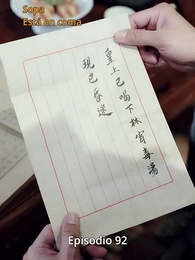 Sopa
Está En coma
皇上已喝下林宵毒湯
現已昏迷
Episodio 92